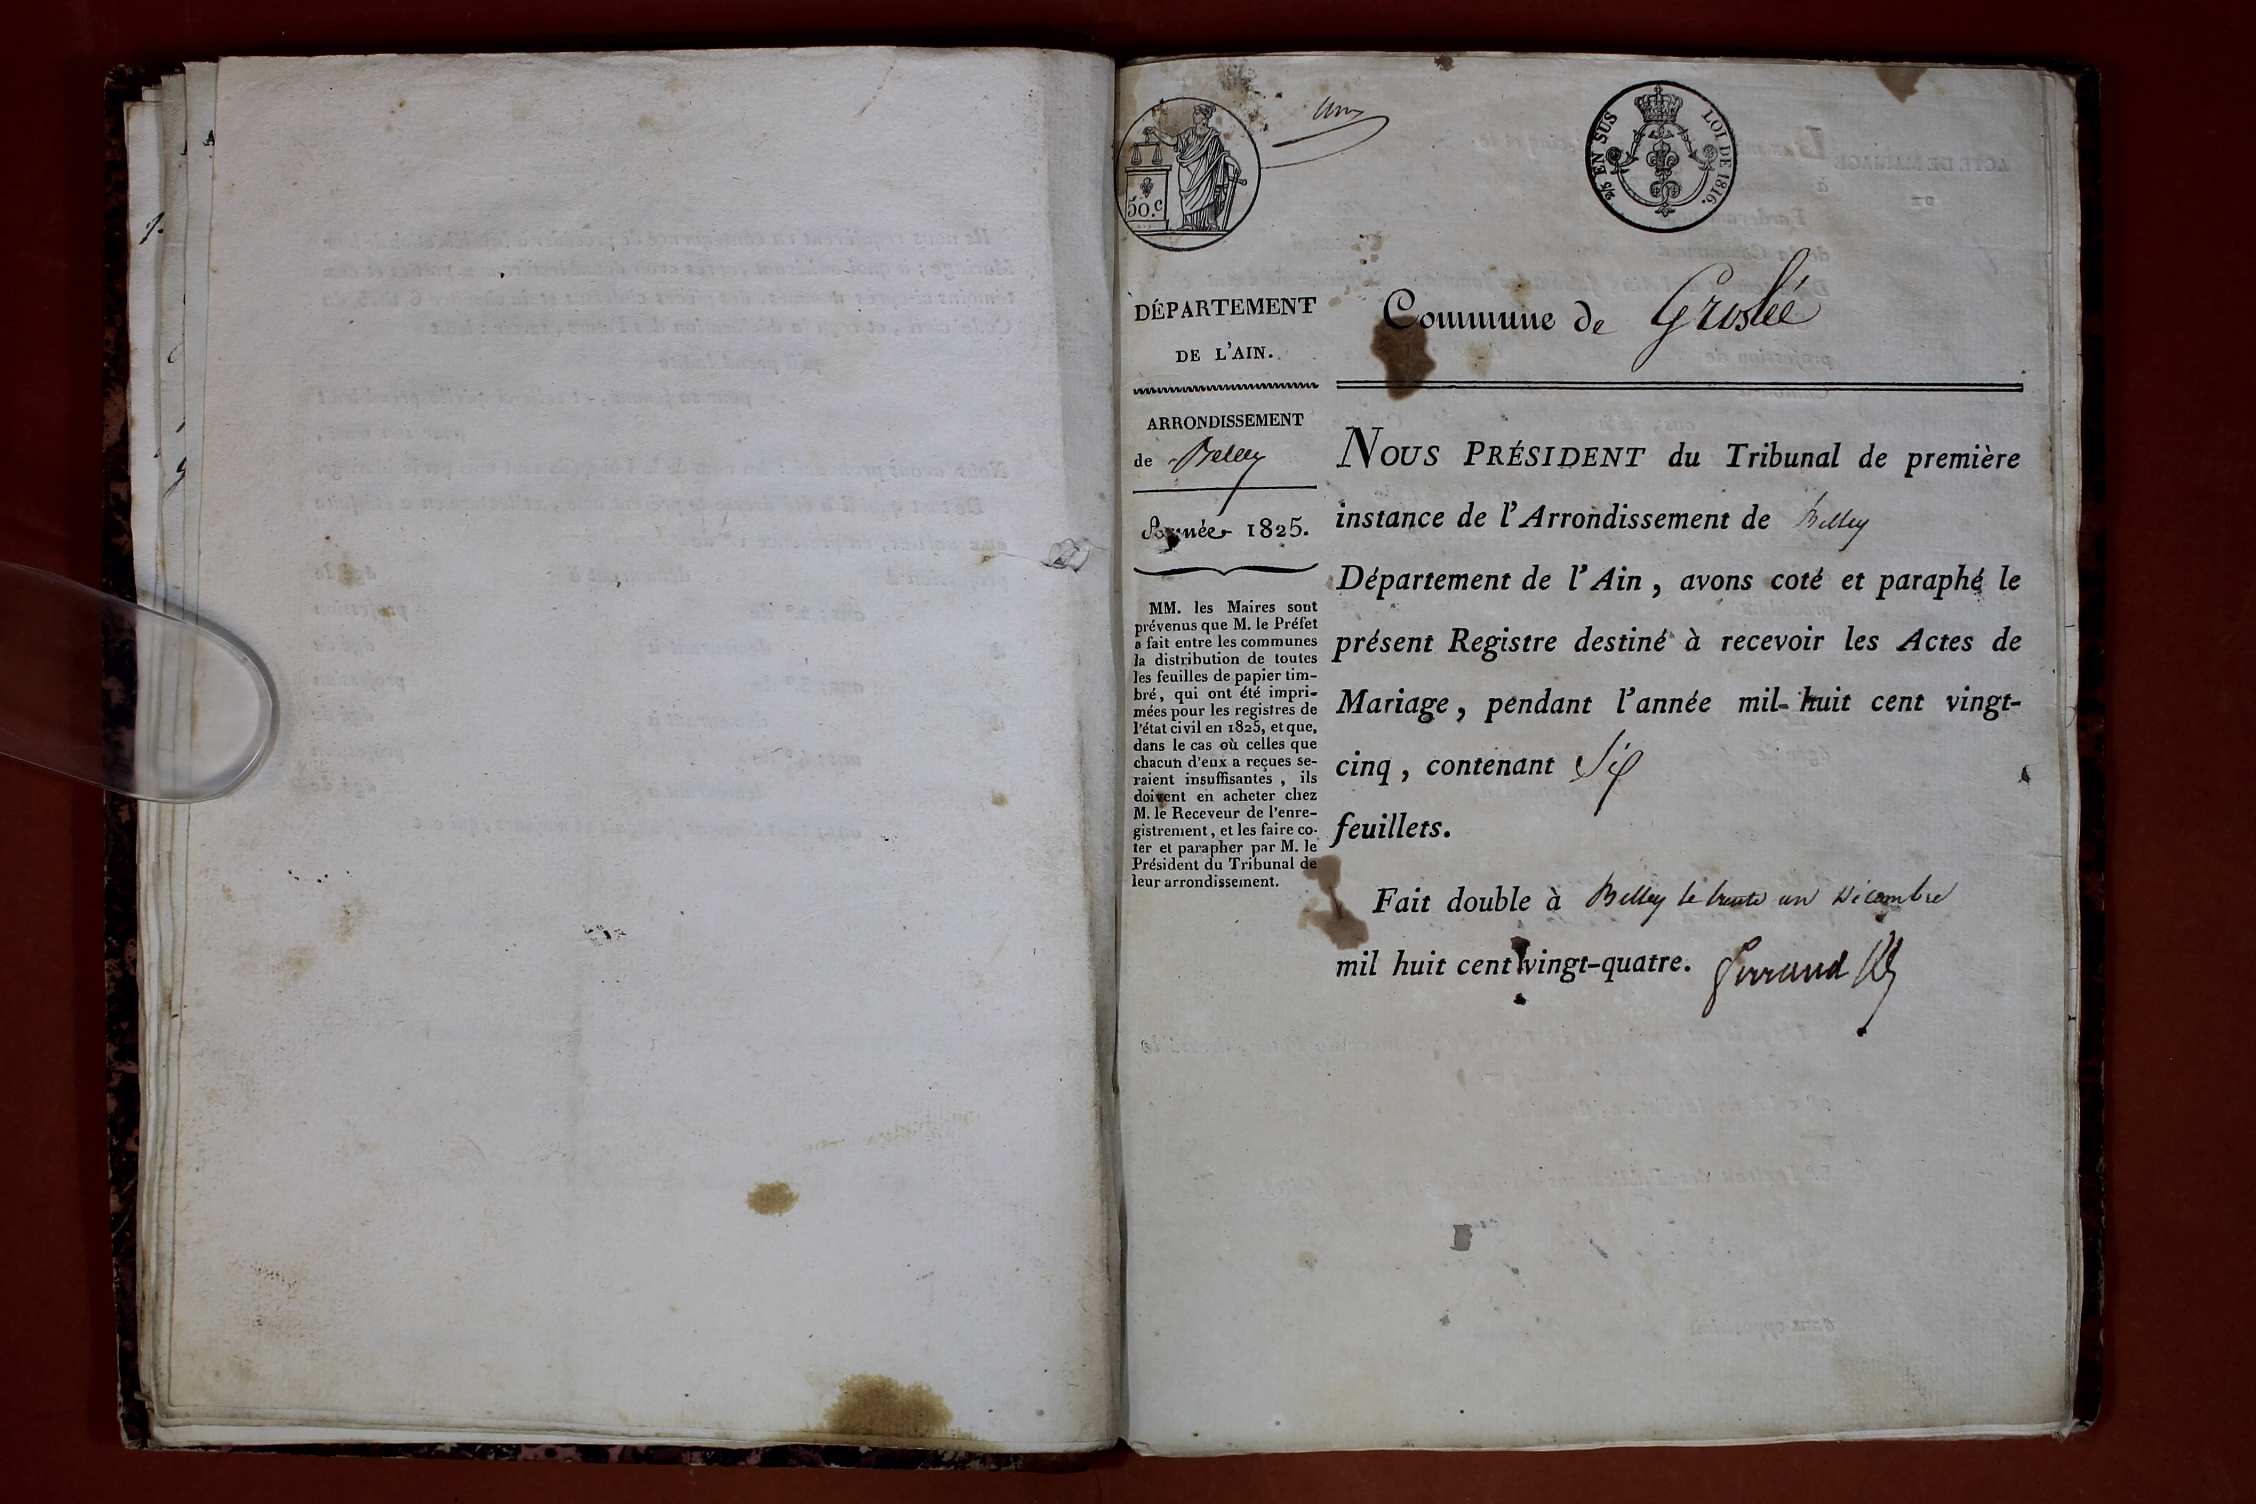 50.c
2/5 EN SUS LOI DE 1816.
DÉPARTEMENT
DE L'AIN.
ARRONDISSEMENT
de Belley
Année 1825.
MM. les Maires sont
prévenus que M. le Préfet
a fait entre les communes
la distribution de toutes
les feuilles de papier tim-
bré, qui ont été impri-
mées pour les registres de
l'état civil en 1825, et que,
dans le cas où celles que
chacun d'eux a reçues se-
raient insuffisantes, ils
doivent en acheter chez
M. le Receveur de l'enre-
gistrement, et les faire co-
ter et parapher par M. le
Président du Tribunal de
leur arrondissement.
Commune de Groslée
NOUS PRÉSIDENT du Tribunal de première
instance de l'Arrondissement de Belley
Département de l'Ain, avons coté et paraphé le
présent Registre destiné à recevoir les Actes de
Mariage, pendant l'année mil-huit cent vingt-
cinq, contenant Six
feuillets.
Fait double à Belley le trente un Décembre
mil huit cent vingt-quatre.